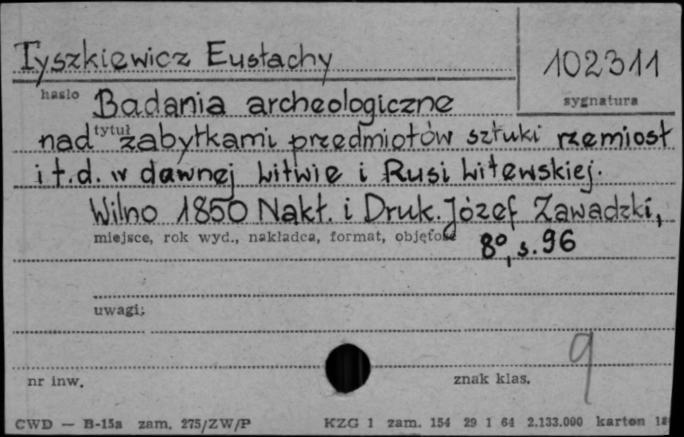 Tyszkiewicz Eustachy
102311
hasło
sygnatura
Badania archeologiczne
tytuł
nad zabytkami przedmiotów sztuki rzemiosł
i t.d. w dawnej Litwie i Rusi Litewskiej.
Wilno 1850 Nakł. i Druk. Józef Zawadzki,
miejsce, rok wyd., nakładca, format, objętość
8°, s. 96
uwagi:
9
nr inw.
znak klas.
CWD — B-15a zam. 275/ZW/P
KZG 1 zam. 154 29 1 64 2.133.000 karton